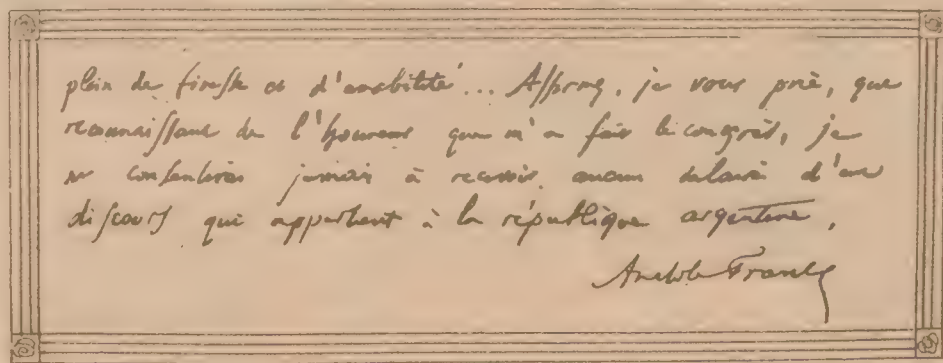 plein de finesse et d'amabilité... Assurez, je vous prie, que
reconnaissant de l'honneur que m'a fait le congrès, je
ne consentirai jamais à recevoir aucun salaire d'un
discours qui appartient à la république argentine.
Anatole France